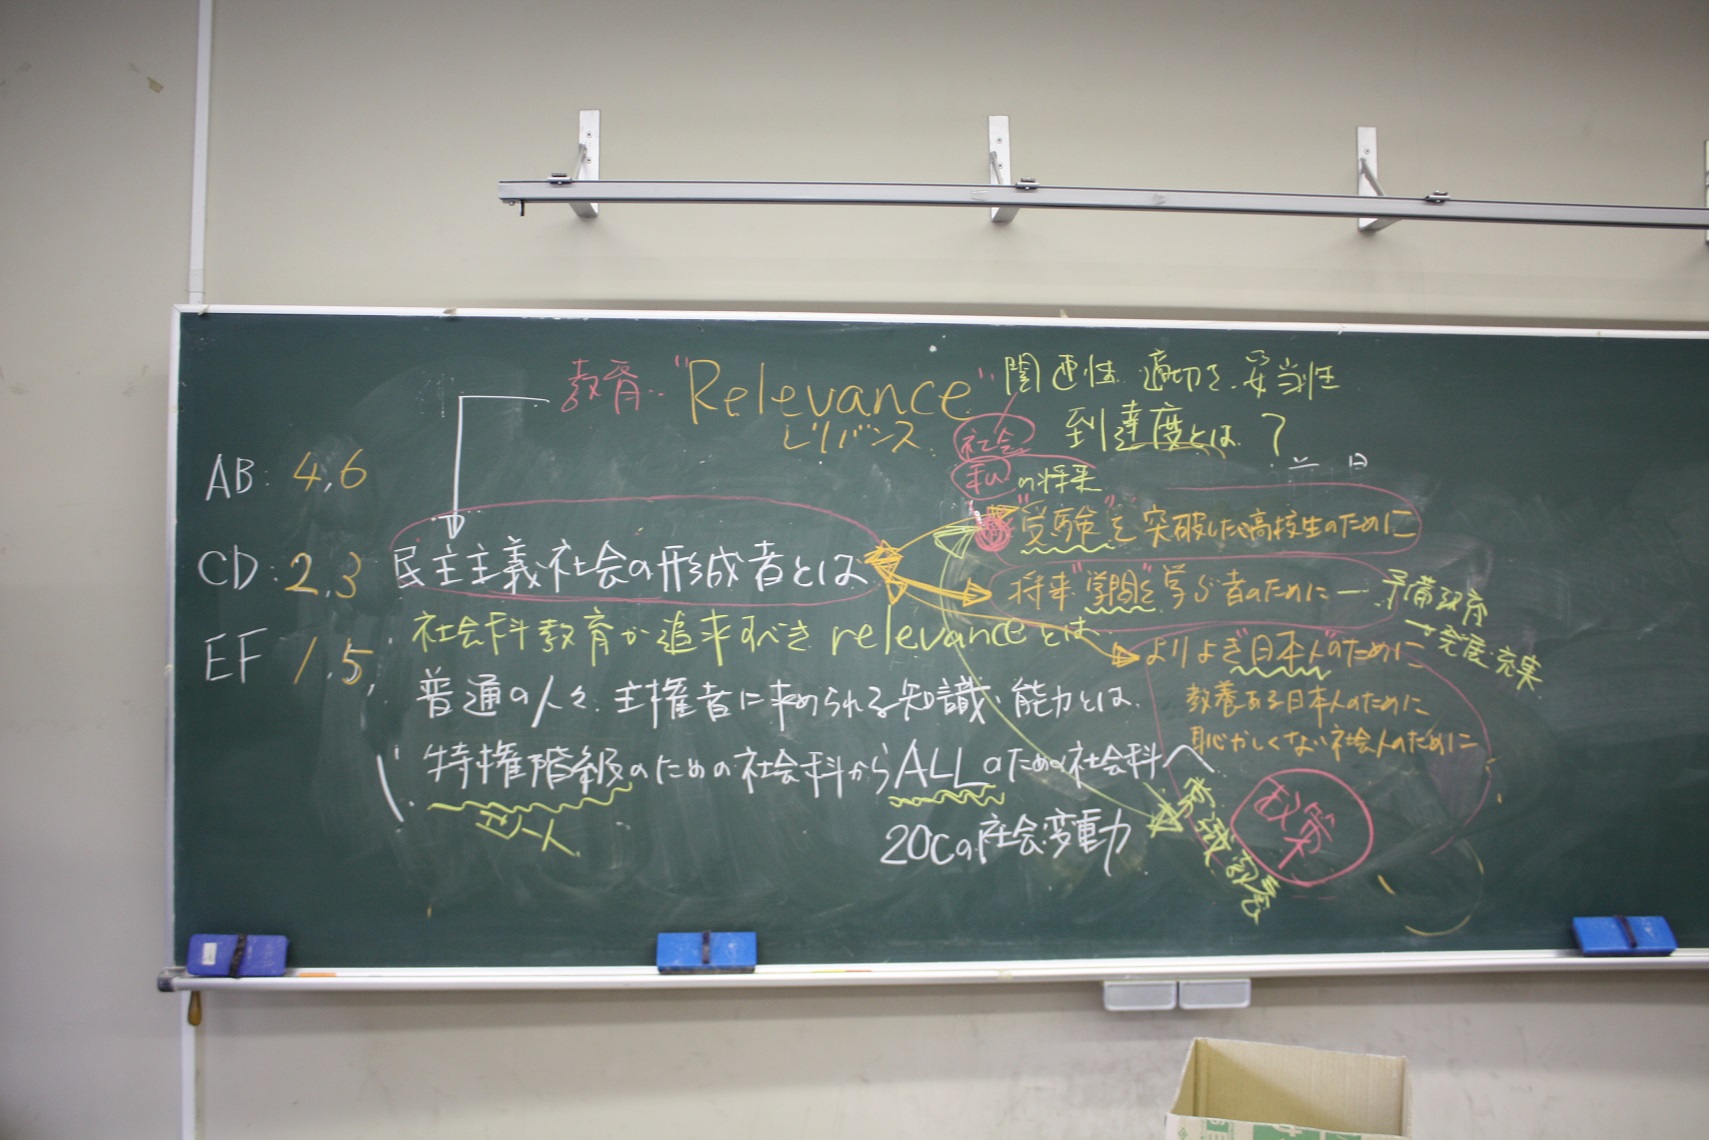 教育 "Relevance" 関連性 適切さ 妥当性
レリバンス
到達度とは?
社会
私の将来
AB: 4,6
CD: 2,3
EF 1,5,
民主主義社会の形成者とは
"受験"を突破したい高校生のために
将来"学問"を学ぶ者のために
予備教育
→発展・充実
社会科教育が追求すべき relevanceとは
より よき"日本人"のために
普通の人々、主権者に求められる知識・能力とは
教養ある日本人のために
恥かしくない社会人のために
特権階級のための社会科からALLのための社会科へ
エリート
20Cの社会変動
政策